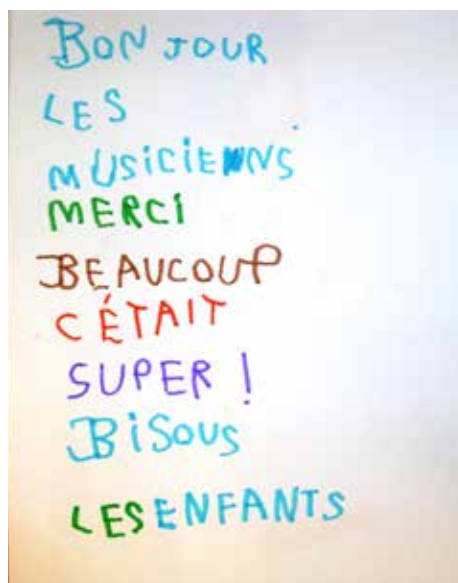 BONJOUR
LES
MUSICIENNS
MERCI
BEAUCOUP
C ÉTAIT
SUPER !
BiSOUS
LES ENFANTS